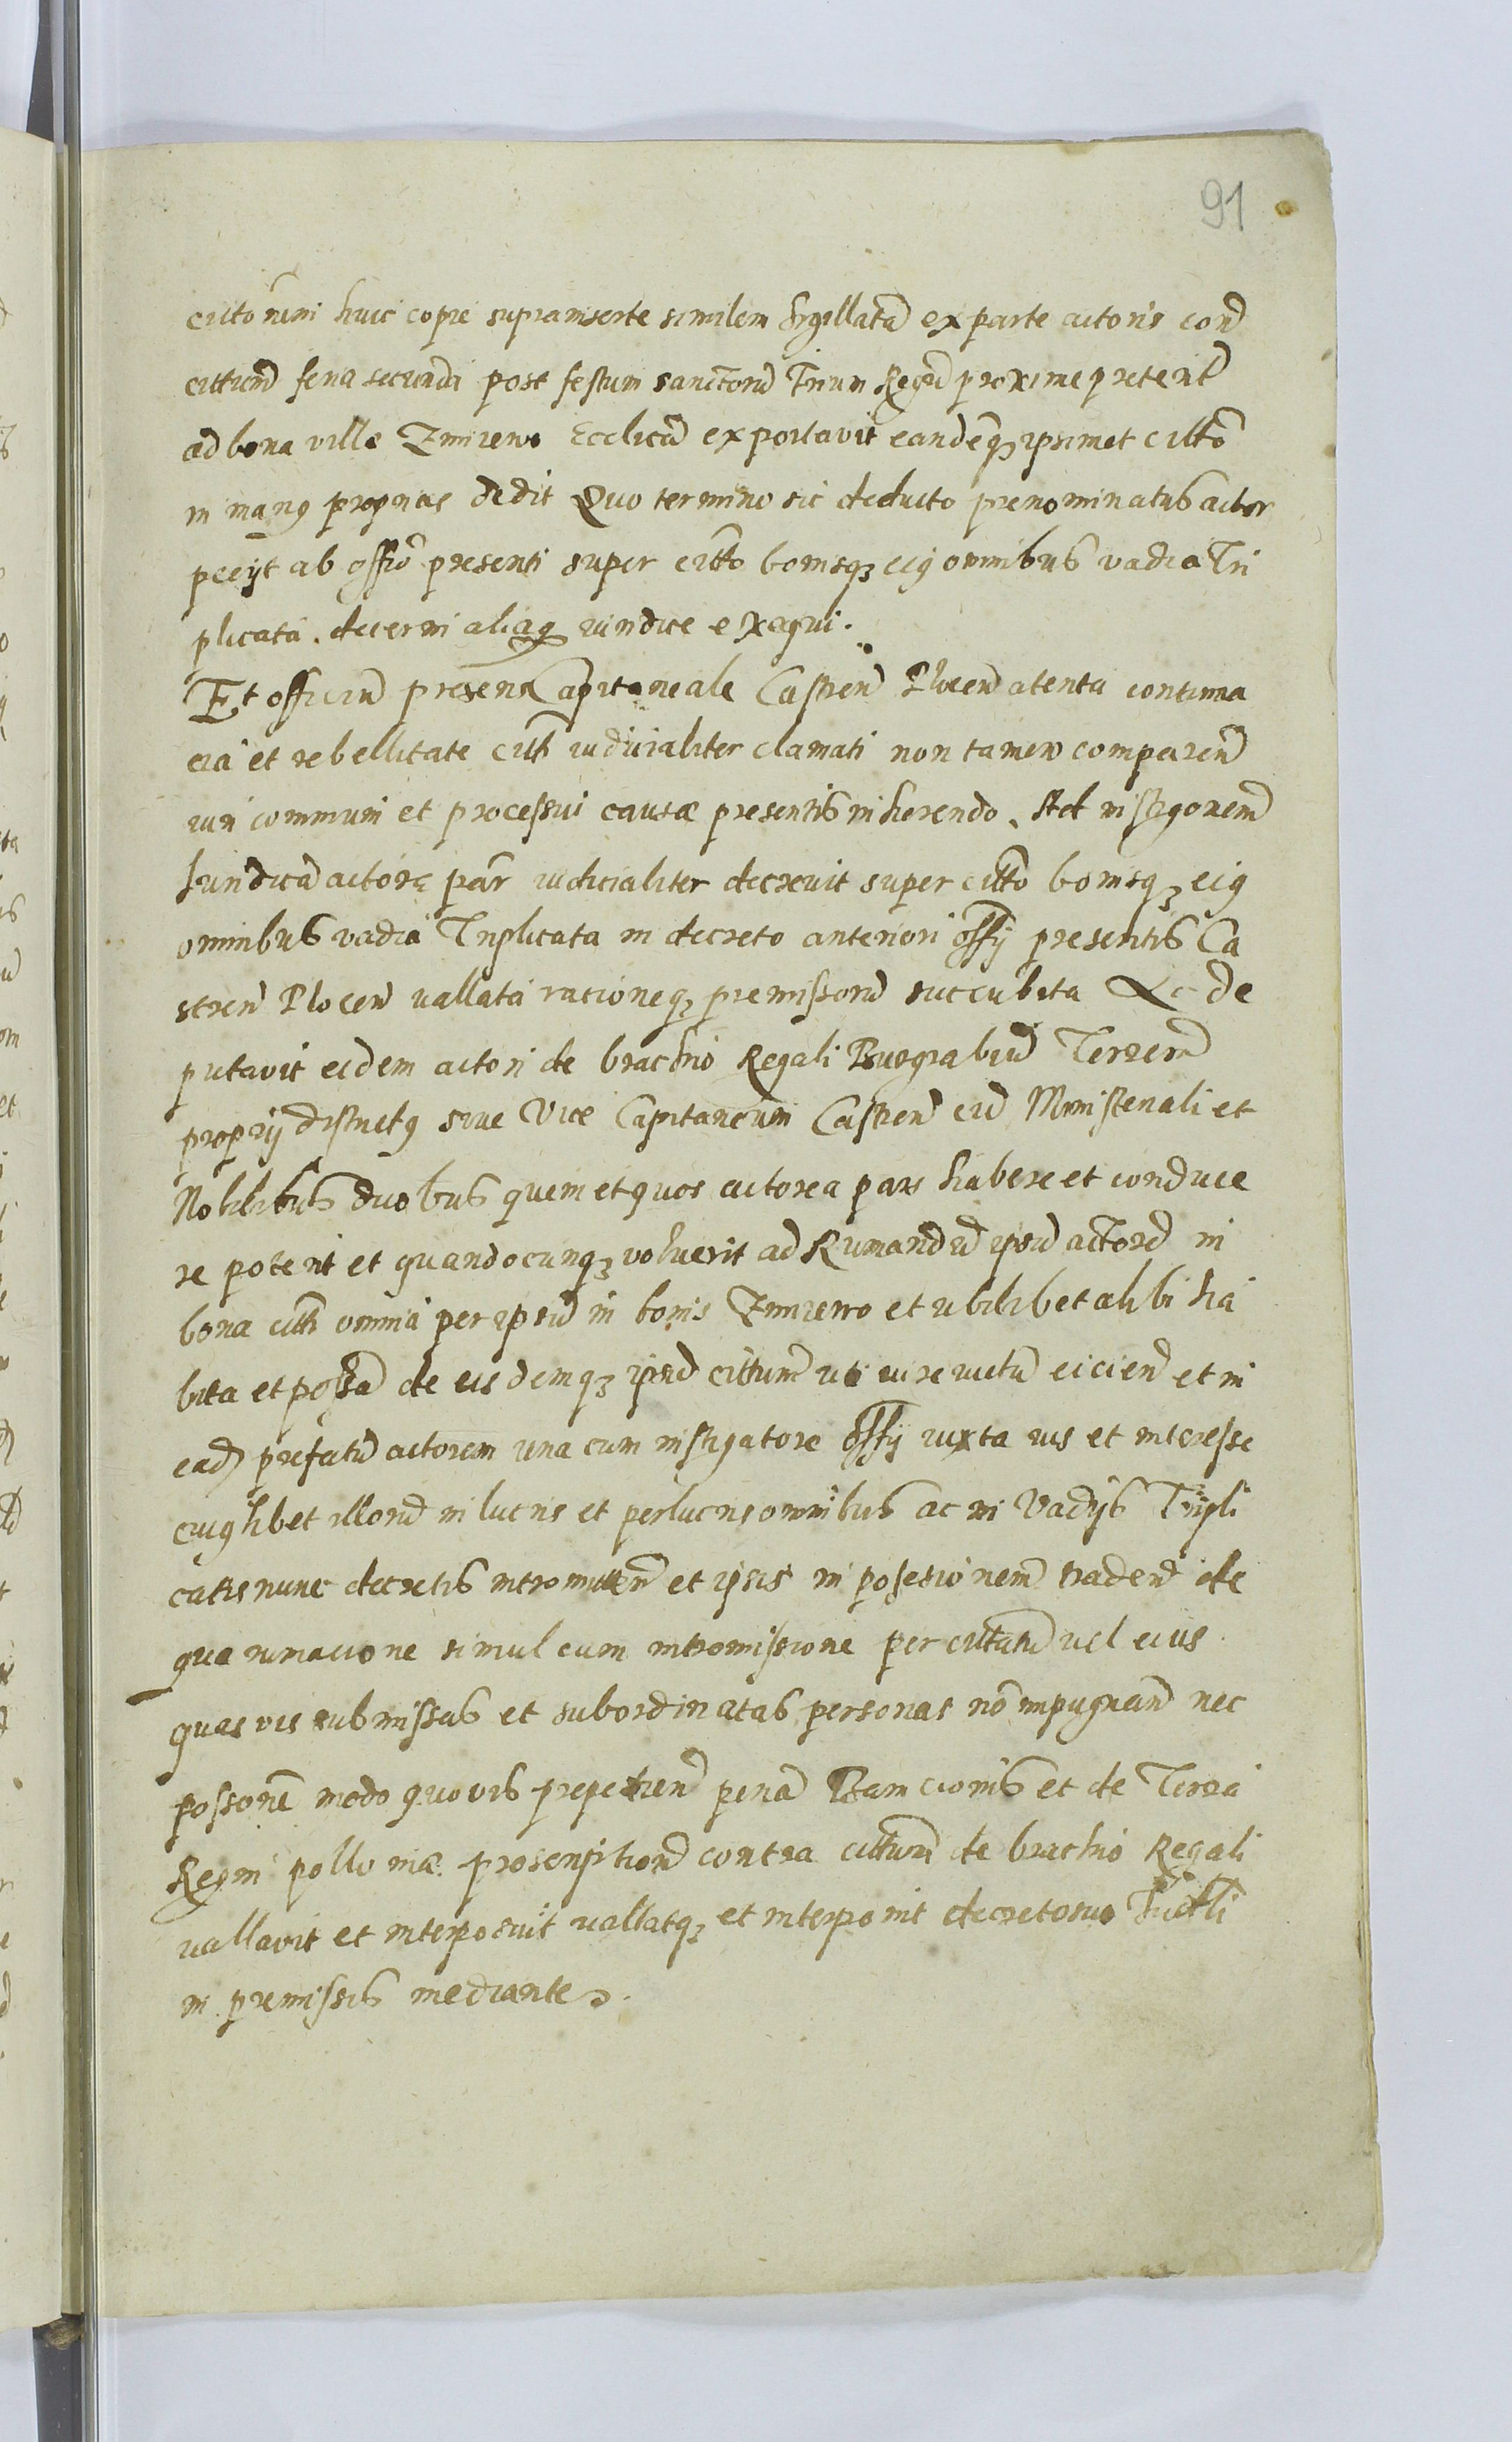 91
cittonem huic copie suprainserte similem Sigillatã ex parte actoris con͠
cittum͠ feria secunda post festum sanctorũ Trium Regũ proxime preterit͠
ad bona ville Zmiiewo Ecclicã exportavit eandẽq3 ipsimet citto͠
in manꝰ proprias dedit Quo termino sic deducto prenominatus actor
peciit ab offio͠ presenti super citto͠ bonisq3 eiꝰ omnibus vadia Tri
plicata decerni aliaqꝫ iuridice exequi.
Et officiũ presens Capitaneale Castren͠ Plocen͠ atenta contuma
cia et rebellitate citti͠ iudicialiter clamati non tamen comparen͠
iuri communi et processui causæ presentis inherendo. Ad instigonem͠
Iuridicã actoreæ par͠ iudicialiter decrevit super citto͠ bonisq3 eiꝰ
omnibus vadia Triplicata in decreto anteriori offy͠ presentis Ca
stren͠ Plocen͠ vallata rationeq3 premissorũ succubita & de
putavit eidem actori de brachio Regali Burgrabiũ Terren͠
proprij districtꝰ sive Vice Capitaneum Castren͠ cũ Ministeriali et
Nobilibus duobus quem et quos actorea pars habere et conduce
re poterit et quandocunq3 voluerit ad Rumandũ ipsũ actorẽ in
bona citti͠ omnia per ipsũ in bonis Zmiiewo et ubilibet alibi ha
bita et possa͠ de eisdemq3 ipsũ cittum͠ uti iure victũ eicien͠ et in
ead͠ prefatũ actorem una cum instigatore offy͠ iuxta ius et interesse
cuiꝰlibet illorũ in lucris et perlucris omnibus ac in Vadijs Tripli
catis nunc decretis intromitten͠ et ipsis in posesionem͠ traden͠ de
qua rumacione simul cum intromissione per cittatũ vel eius
quasvis submissas et subordinatas personas nõ impugnan͠ nec
possonẽ modo quovis prepedien͠ penã Bannicionis et de Terra
Regni polloniæ proscriptionẽ contra cittum͠ de brachio Regali
vallavit et interposuit vallatq3 et interponit decreto suo Iudtli͠
in premissis mediante.